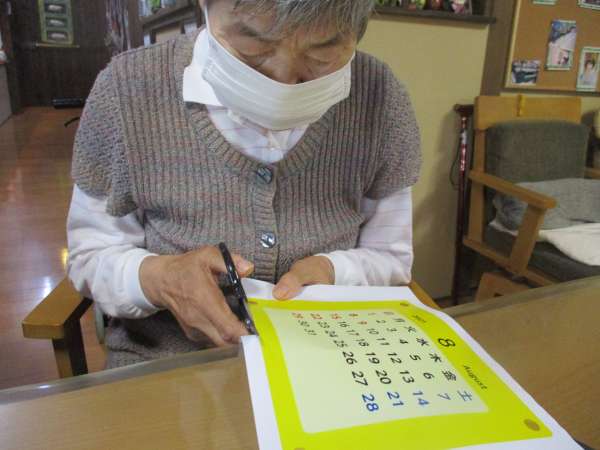 8
August
日 月 火 水 木 金 土
1 2 3 4 5 6 7
8 9 10 11 12 13 14
15 16 17 18 19 20 21
22 23 24 25 26 27 28
29 30 31